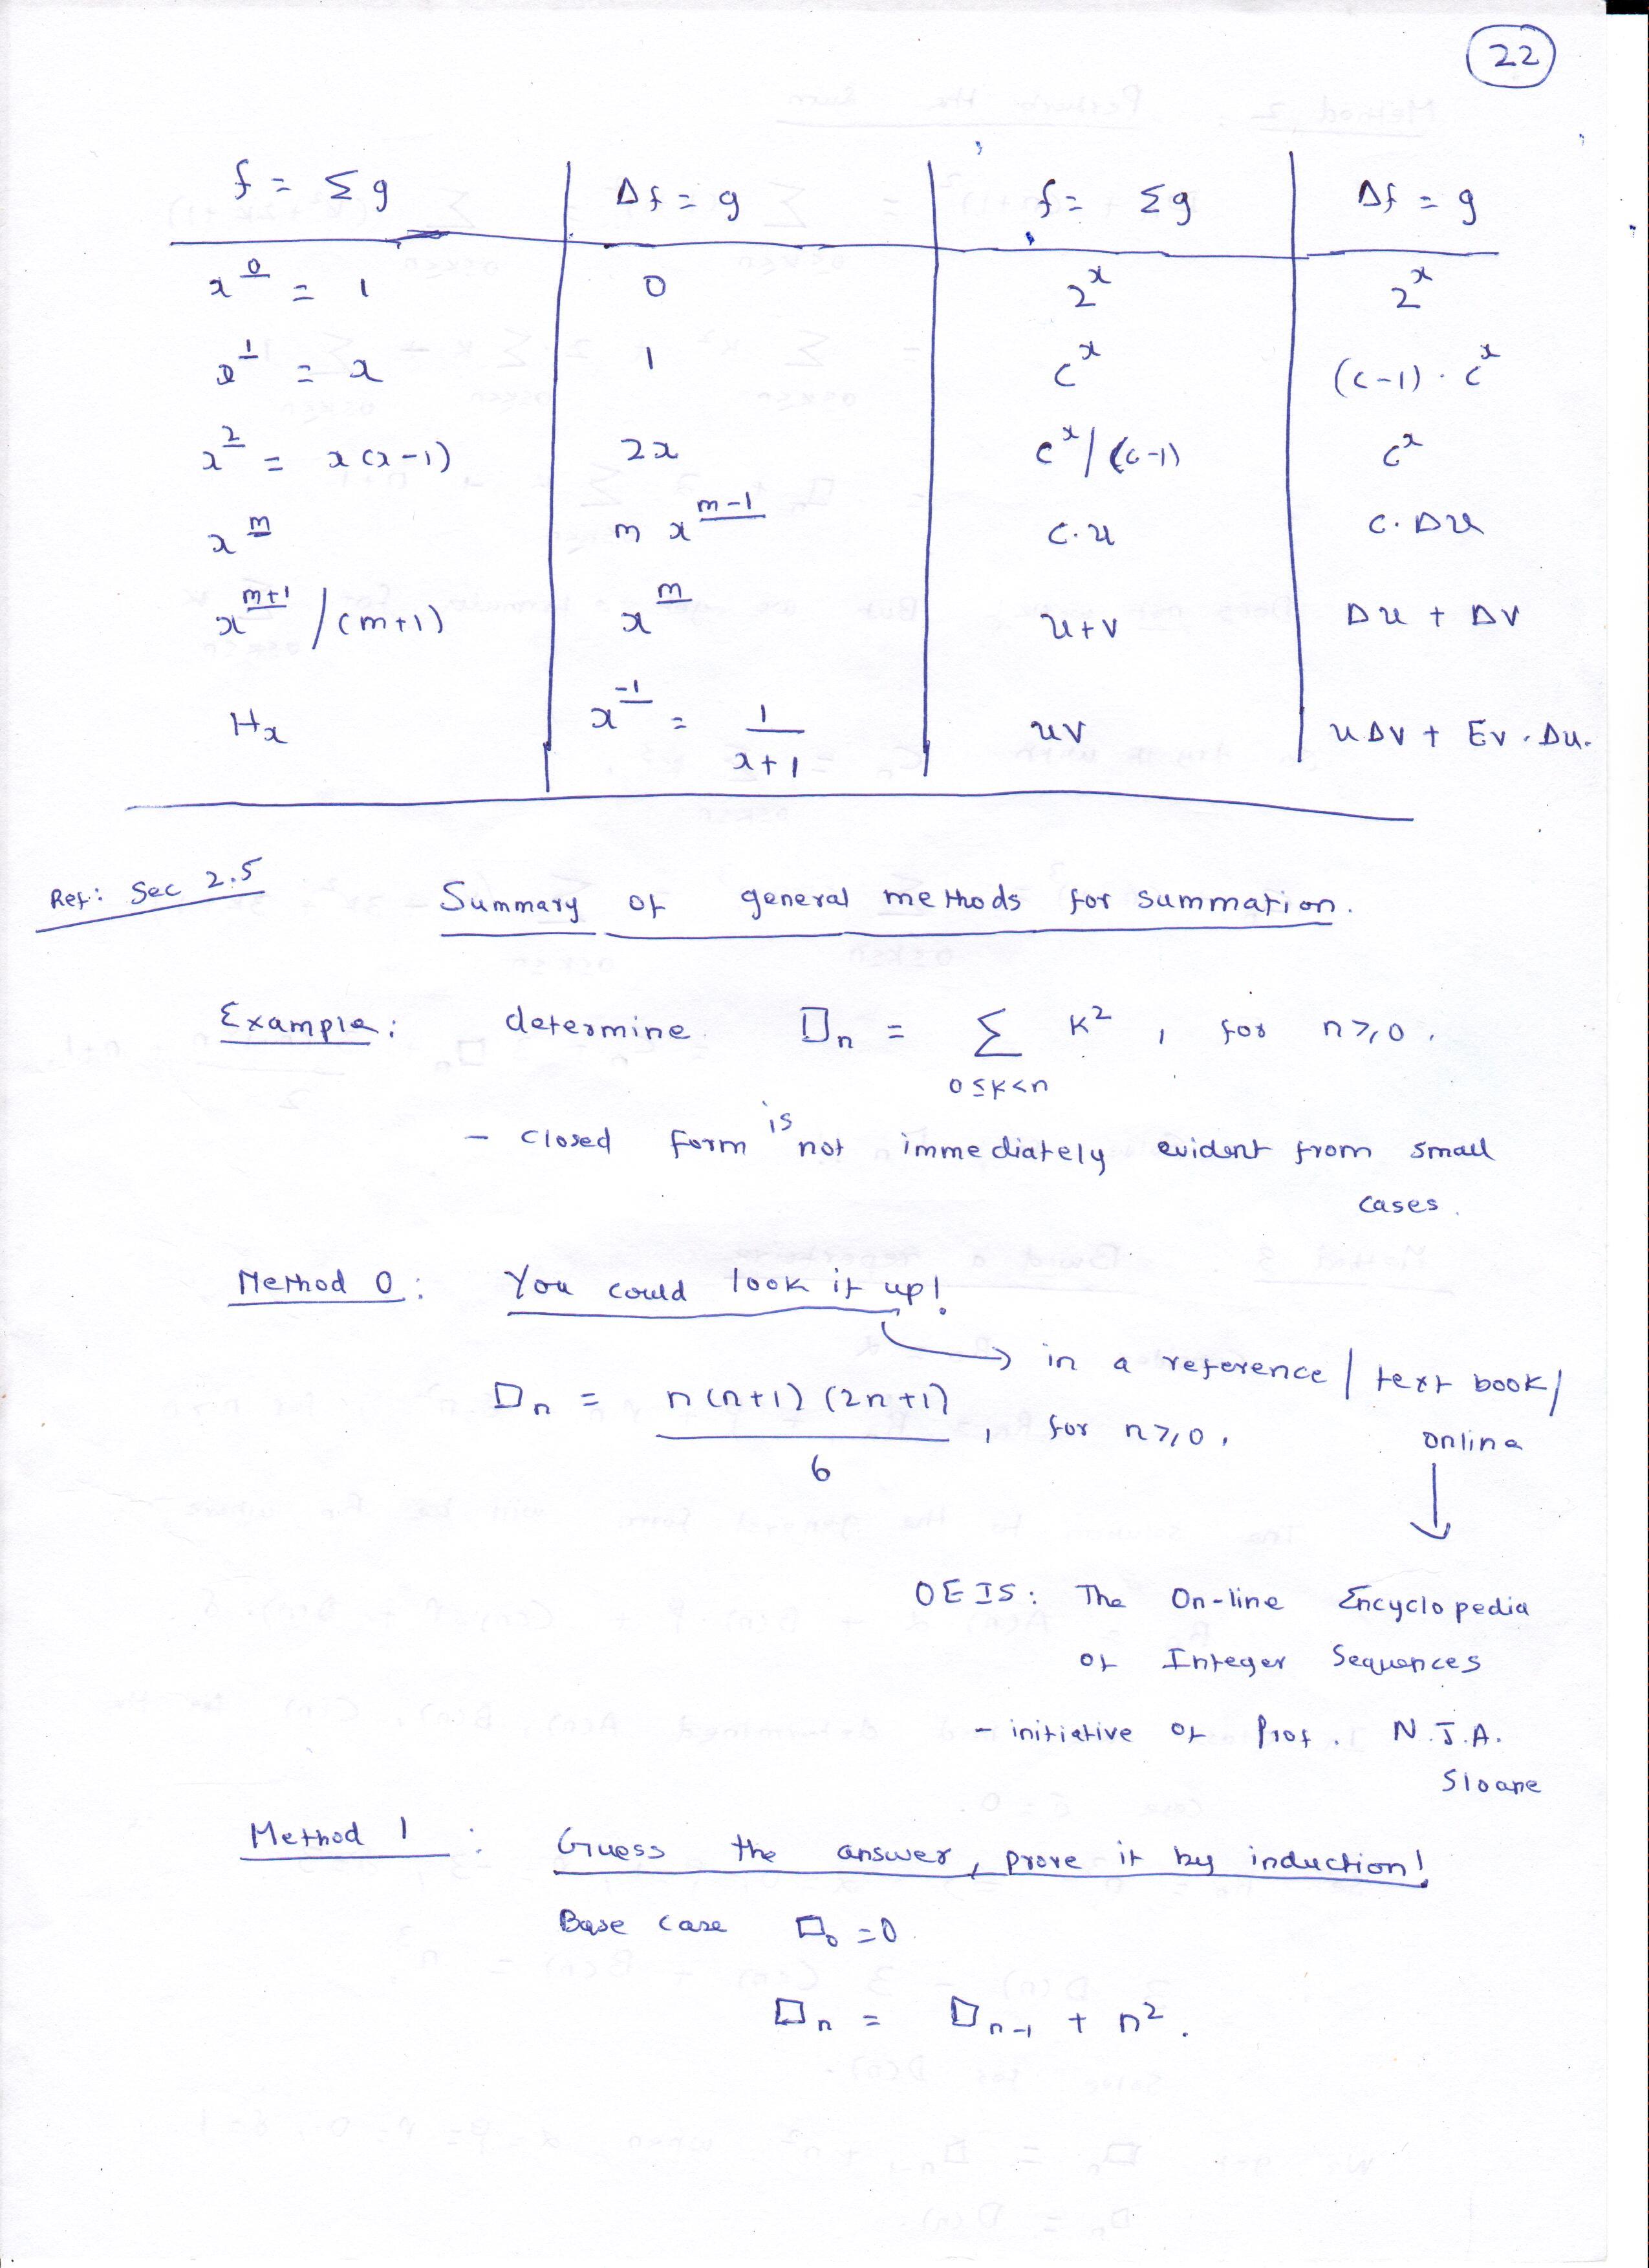 22
f = Σg | Δf = g | f = Σg | Δf = g
x^0̲ = 1 | 0 | 2^x | 2^x
x^1̲ = x | 1 | c^x | (c-1) . c^x
x^2̲ = x(x-1) | 2x | c^x/(c-1) | c^x
x^m̲ | m x^(m-1)̲ | c.u | c. Δu
x^(m+1)̲ /(m+1) | x^m̲ | u+v | Δu + Δv
H_x | x^-1̲ = 1/(x+1) | uv | uΔv + Ev.Δu.
Ref: Sec 2.5
Summary of general methods for summation.
Example: determine □_n = Σ_{0≤k<n} k², for n≥0.
- closed form is not immediately evident from small
cases.
Method 0: You could look it up!
→ in a reference / text book /
online
□_n = n(n+1)(2n+1)/6, for n≥0.
↓
OEIS: The On-line Encyclopedia
of Integer Sequences
- initiative of Prof. N.J.A.
Sloane
Method 1 : Guess the answer, prove it by induction!
Base case □_0 = 0.
□_n = □_{n-1} + n².